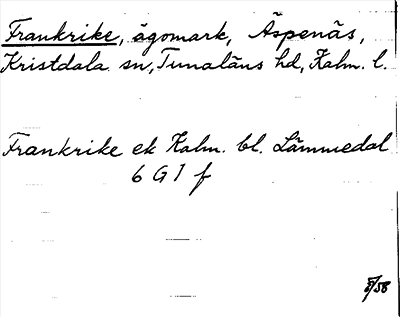 Frankrike, ägomark, Äspenäs,
Kristdala sn, Tunaläns hd, Kalm. l.
Frankrike ek Kalm. bl. Lämmedal
6 G 1 f
5/58